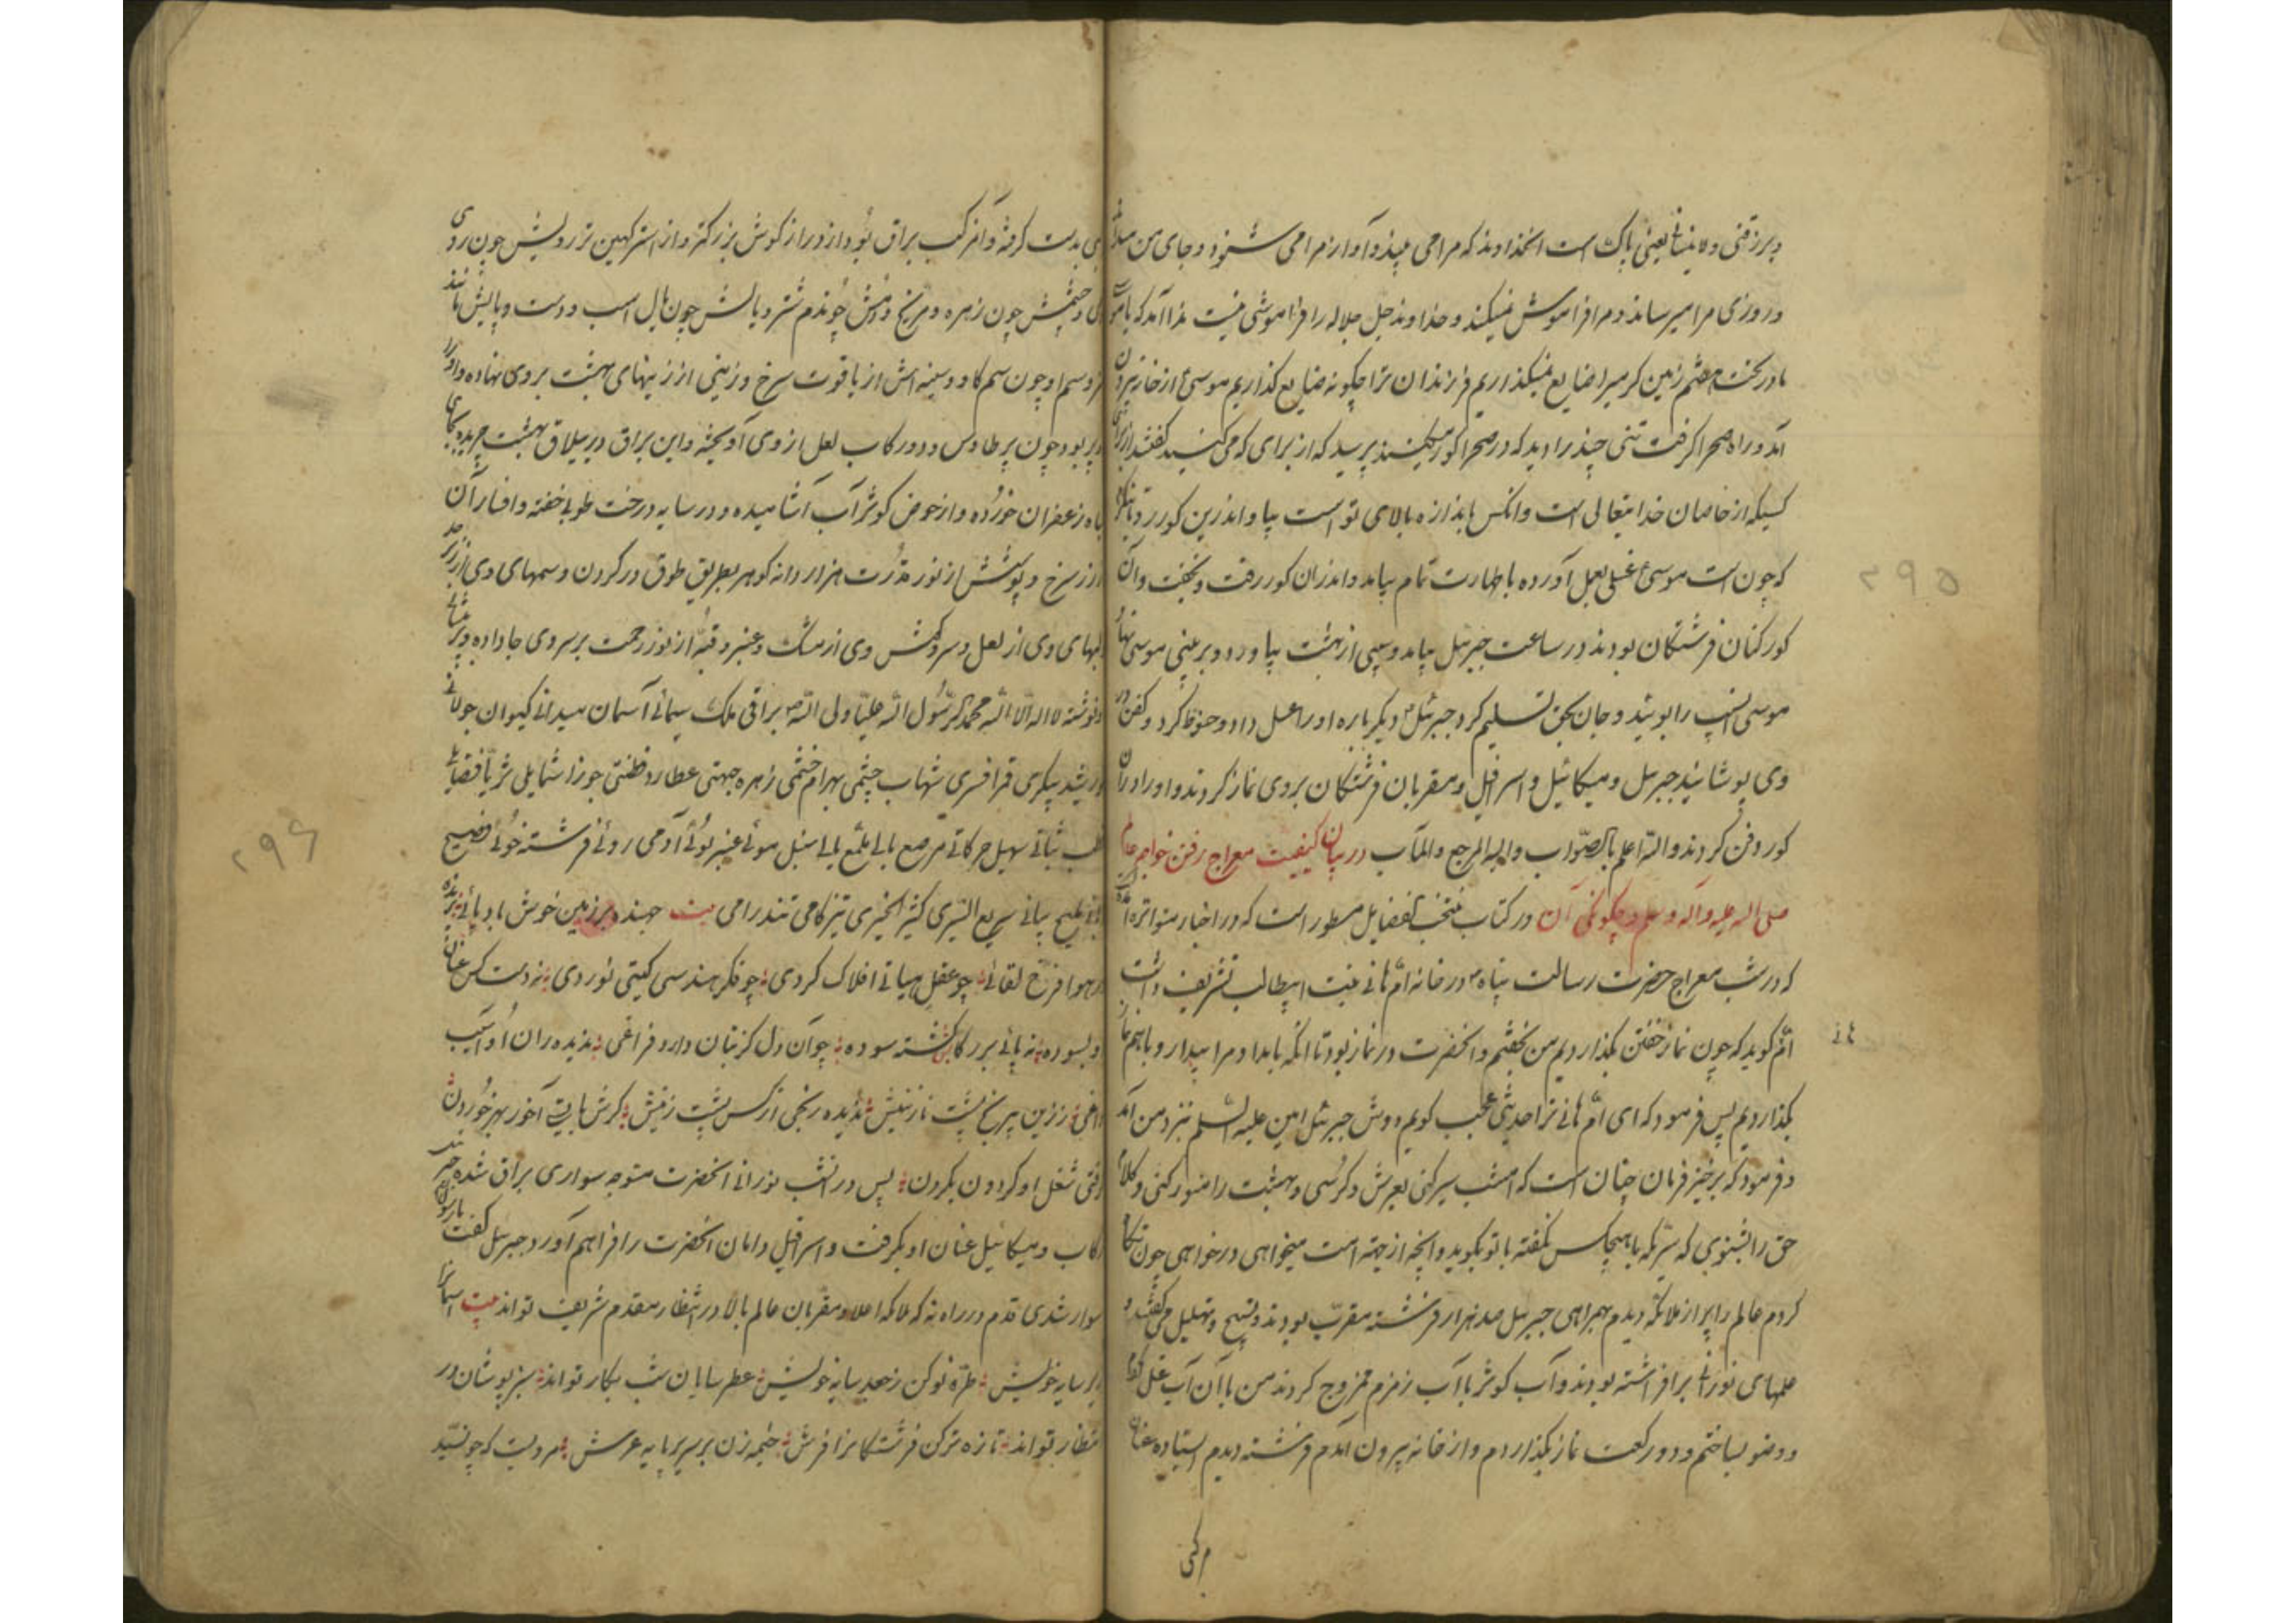 و یرزقنی و لا ینسانی یعنی پاک است آنخداوند که مرا می بیند و آواز مرا می شنود و جای من میداند
و روزی مرا میرساند و مرا فراموش نمیکند و خداوند جل جلاله را فراموشی نیست ندا آمد که یا موسی
ما در تحت هفتم زمین کرمیرا ضایع نمیگذاریم فرزندان ترا چگونه ضایع گذاریم موسی از خانه بیرون
آمد و راه صحرا گرفت تنی چند را دید که در صحرا گور میکنند پرسید که از برای که می کنید گفتند از برای
کسیکه از خاصان خدایتعالی است و آنکس باندازه بالای تو است بیا و اندرین گور رو تا بنگری
که چون است موسی غسلی بعمل آورده با طهارت تمام بیامد و اندران گور رفت و بخفت و آن
گورکنان فرشتگان بودند در ساعت جبرئیل بیامد و سیبی از بهشت بیاورد و بر بینی موسی نهاد
موسی آن سیب را بوئید و جان بحق تسلیم کرد جبرئیل دیگر باره او را غسل داد و حنوط کرد و کفن در
وی پوشانید جبرئیل و میکائیل و اسرافیل و مقربان فرشتگان بروی نماز کردند و او را در آن
گور دفن کردند والله اعلم بالصواب والیه المرجع والمآب در بیان کیفیت معراج رفتن خواجه عالم
صلی الله علیه وآله وسلم و چگونگی آن در کتاب منتخب الفضایل مسطور است که در اخبار متواتره آمده
که در شب معراج حضرت رسالت پناه در خانه ام هانی بنت ابیطالب تشریف داشت
ام گوید که چون نماز خفتن بگذاردیم من بخفتم و آنحضرت در نماز بود تا آنکه بامداد مرا بیدار و با هم نماز
هانی
بگذاردیم پس فرمود که ای ام هانی ترا حدیثی عجب گویم دوش جبرئیل امین علیه السلم نزد من آمد
و فرمود که برخیز فرمان چنان است که امشب سیر کنی بعرش و کرسی و بهشت را منور کنی و کلام
حق را بشنوی که سریکه با هیچکس نگفته با تو بگوید و آنچه از جهة امت میخواهی درخواهی چون نگاه
کردم عالم را پر از ملائکه دیدم همراهی جبرئیل صد هزار فرشته مقرب بودند و تسبیح و تهلیل می گفتند و
علمهای نورانی برافراشته بودند و آب کوثر با آب زمزم ممزوج کردند من با آن آب غسل کردم
و وضو بساختم و دو رکعت نماز بگذاردم و از خانه بیرون آمدم فرشته دیدم ایستاده عنان
مرکبی
۲۹۵
بدست گرفته و آن مرکب براق بود از دراز گوش بزرگتر و از استر کهین تر رویش چون روی
و چشمش چون زهره و مریخ و دمش چون دم شتر و یالش چون یال اسب و دست و پایش مانند
و سم او چون سم گاو و سینه اش از یاقوت سرخ و زینی از زینهای بهشت بروی نهاده و او را
پر بود چون پر طاوس و دو رکاب لعل از وی آویخته و این براق در ییلاق بهشت چریده بجای
گیاه زعفران خورده و از حوض کوثر آب آشامیده و در سایه درخت طوبی خفته و افسار آن
از زر سرخ و پوششش از نور قدرت هزار دانه گوهر بطریق طوق در گردن و سمهای وی از زبرجد
لبهای وی از لعل و سر و گوش وی از مشک و عنبر و قبه از نور رحمت بر سر وی جا داده و بر پیشانی
نوشته لا اله الا الله محمد الرسول الله علی ولی الله براقی ملک سیمائی آسمان میدانی کیوان جولانی
خورشید پیکری قمر افسری شهاب چشمی بهرام خشمی زهره جبهتی عطارد فطنتی جوزا شمایلی ثریا فضایلی
قطب ثباتی سهیل حرکاتی مرصع یالی ملمع بالی سنبل موئی عنبر بوئی آدمی روئی فرشته خوئی فصیح
ملیح بیانی سریع السیری کثیر الخیری تیز گامی تند رامی بیت جهنده بر زمین خوش بادپائی پرنده
در هوا فرخ لقائی چو عقل هیاتی افلاک گردی چو فکر هندسی گیتی نوردی نه دست کس عنان
او بسوده نه پائی بر رکابش گشته سوده چو آن دل کز بتان دارد فراغی ندیده ران او آسیب
داغی زرین پر نخ پشت نازنینش ندیده رنجی از کس پشت زینش گرش بایستی آخور بهر خوردن
شدی شغل او گردون بگردن پس در آن شب نورانی آنحضرت متوجه سواری براق شده جبرئیل
رکاب و میکائیل عنان او بگرفت و اسرافیل دامان آنحضرت را فراهم آورد جبرئیل گفت یا رسول
سوار شدی قدم در راه نه که ملائکه اعلا و مقربان عالم بالا در انتظار مقدم شریف تواند بیت آسمان را
بر سایه خویش طره نو کن ز جعد سایه خویش عطر سایان شب بکار تواند سبز پوشان در
انتظار تواند تازه تر کن فرشتگان را فرش خیمه زن بر سریر پایه عرش مرویست که چون سید
۲۹۶